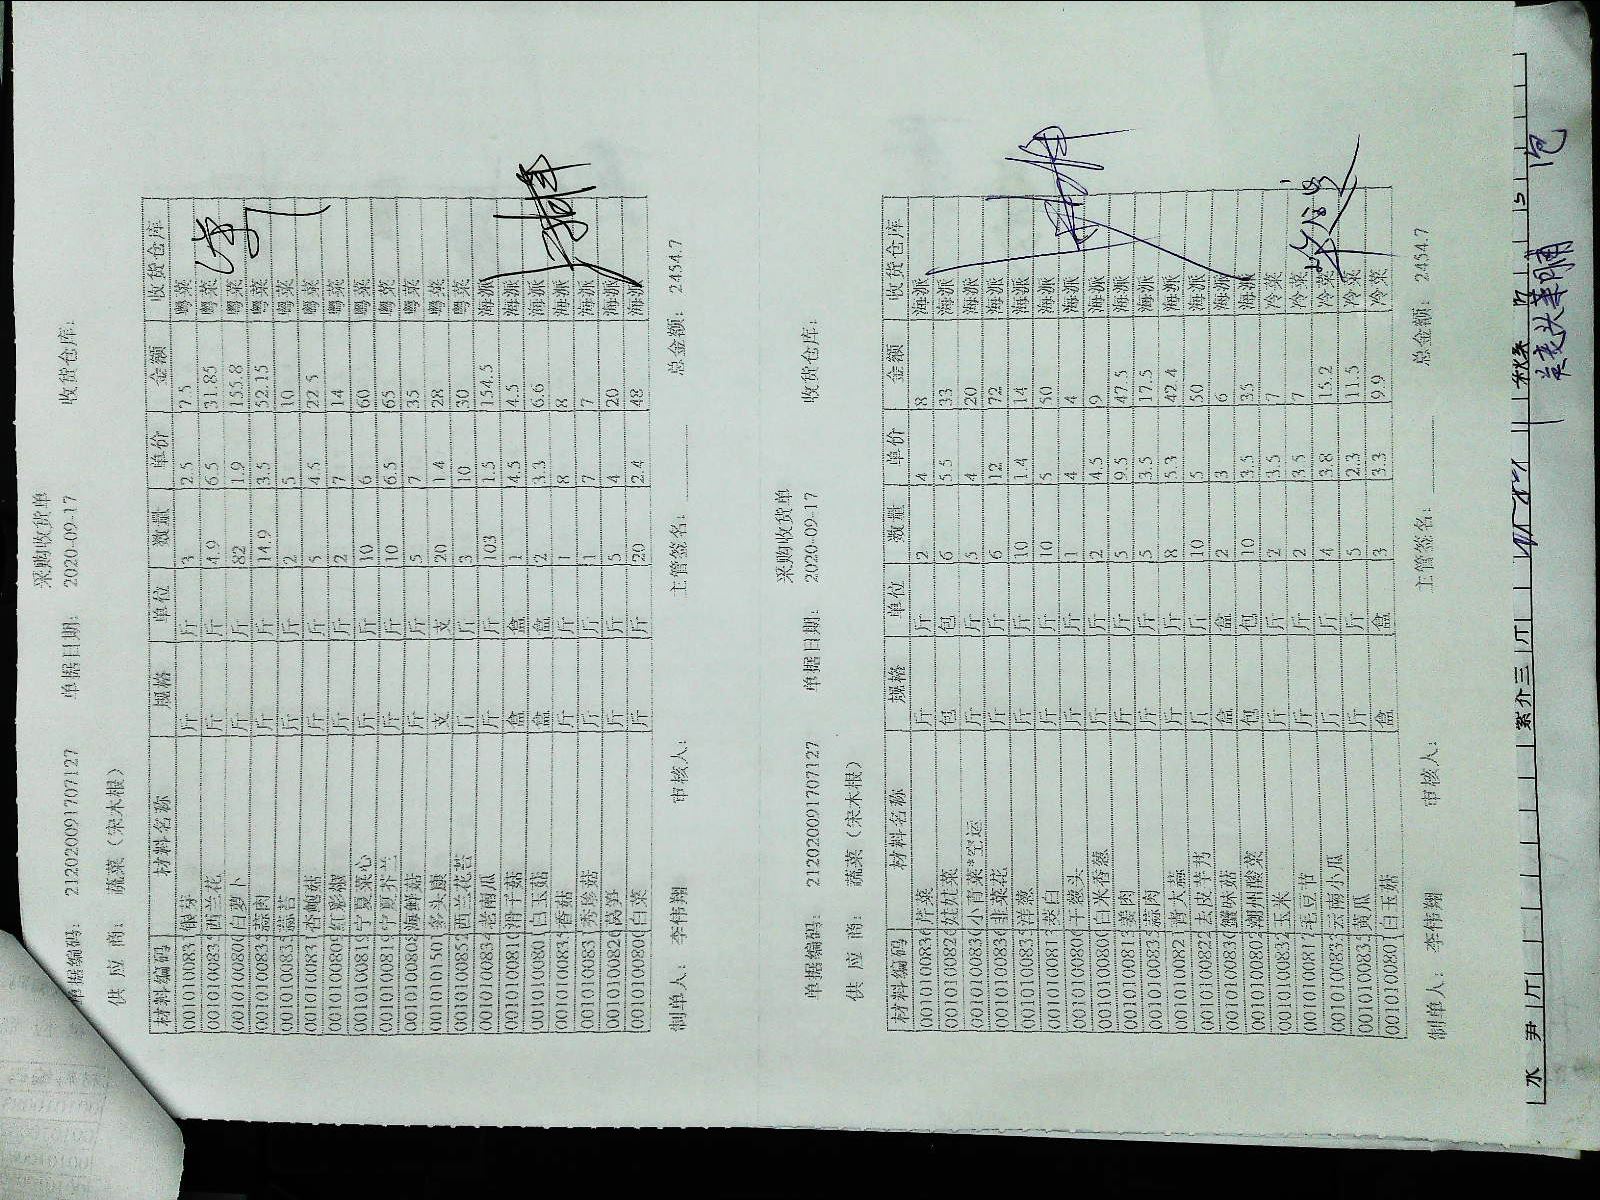 采购收货单
单据编码： 21202009170 7127 单据日期： 2020-09-17 收货仓库：
供 应 商： 蔬菜（宋木根）
材料编码 材料名称 规格 单位 数量 单价 金额 收货仓库
001010083 银芽 斤 斤 3 2.5 7.5 粤菜
001010083 西兰花 斤 斤 4.9 6.5 31.85 粤菜
001010080 白萝卜 斤 斤 82 1.9 155.8 粤菜
001010083 蒜肉 斤 斤 14.9 3.5 52.15 粤菜
001010083 蒜苔 斤 斤 2 5 10 粤菜
001010083 杏鲍菇 斤 斤 5 4.5 22.5 粤菜
001010080 红彩椒 斤 斤 2 7 14 粤菜
001010081 宁夏菜心 斤 斤 10 6 60 粤菜
001010081 宁夏芥兰 斤 斤 10 6.5 65 粤菜
001010080 海鲜菇 斤 斤 5 7 35 粤菜
001010150 多头康 支 支 20 1.4 28 粤菜
001010085 西兰花苔 斤 斤 3 10 30 粤菜
001010083 老南瓜 斤 斤 103 1.5 154.5 海派
001010081 滑子菇 盒 盒 1 4.5 4.5 海派
001010080 白玉菇 盒 盒 2 3.3 6.6 海派
001010083 香菇 斤 斤 1 8 8 海派
001010083 秀珍菇 斤 斤 1 7 7 海派
001010082 莴笋 斤 斤 5 4 20 海派
001010080 白菜 斤 斤 20 2.4 48 海派
制单人： 李伟翔 审核人： 主管签名： 总金额： 2454.7
采购收货单
单据编码： 212020091707127 单据日期： 2020-09-17 收货仓库：
供 应 商： 蔬菜（宋木根）
材料编码 材料名称 规格 单位 数量 单价 金额 收货仓库
001010083 芹菜 斤 斤 2 4 8 海派
001010082 娃娃菜 包 包 6 5.5 33 海派
001010083 小青菜*空运 斤 斤 5 4 20 海派
001010083 韭菜花 斤 斤 6 12 72 海派
001010083 洋葱 斤 斤 10 1.4 14 海派
001010081 茭白 斤 斤 10 5 50 海派
001010080 干葱头 斤 斤 1 4 4 海派
001010080 白米香葱 斤 斤 2 4.5 9 海派
001010081 姜肉 斤 斤 5 9.5 47.5 海派
001010083 蒜肉 斤 斤 5 3.5 17.5 海派
001010082 青大蒜 斤 斤 8 5.3 42.4 海派
001010082 去皮芋艿 斤 斤 10 5 50 海派
001010083 蟹味菇 盒 盒 2 3 6 海派
001010080 潮州酸菜 包 包 10 3.5 35 海派
001010083 玉米 斤 斤 2 3.5 7 冷菜
001010081 毛豆节 斤 斤 2 3.5 7 冷菜
001010083 云南小瓜 斤 斤 4 3.8 15.2 冷菜
001010083 黄瓜 斤 斤 5 2.3 11.5 冷菜
001010080 白玉菇 盒 盒 3 3.3 9.9 冷菜
制单人： 李伟翔 审核人： 主管签名： 总金额： 2454.7